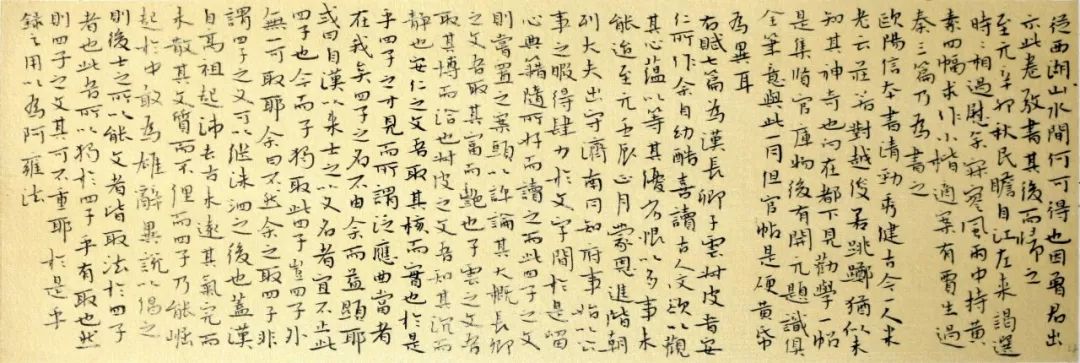 從西湖山水間何可得也因魯君出
示此卷敬書其後而歸之
至元辛卯秋民瞻自江左来謁選
時〻相過慰余寂寞風雨中持黄
素四幅求作小楷適案有賈生過
秦三篇乃為書之
歐陽信本書清勁秀健古今一人米
老云莊若對越俊若跳躑猶似未
知其神奇也向在都下見勸學一帖
是集賢官庫物後有開元題識俱
全筆意與此一同但官帖是硬黄帋
為異耳
右賦七篇為漢長卿子雲叔皮晉安
仁所作余自幼酷喜讀古人文欲以觀
其心蘊以等其優劣恨以多事未
能迨至元壬辰心月蒙恩進階朝
列大夫出守濟南同知府事始以公
事之暇得肆力於文字間於是留
心典籍隨所好而讀之而此四子之文
則嘗置之案頭以評論其大概長卿
之文吾取其富而艷也子雲之文吾
取其博而洽也叔皮之文吾知其沉而
靜也安仁之文吾取其核而實也於是
乎四子之才見而所謂泛應曲當者
在我矣四子之名不由余而益顯耶
或曰自漢以来士之以文名者宜不止此
四子也今而子獨取此四子豈四子外
無一可取耶余曰不然余之取四子非
謂四子之文可以继洙泗之後也蓋漢
自高祖起沛去古未遠其氣完而
未散其文質而不俚而四子乃能崛
起於中敢為雄辭異説以倡之
則後士之所以能文者皆取法於四子
者也此吾所以獨於四子乎有取也然
則四子之文其可不重耶於是乎
録之用以為阿羅法